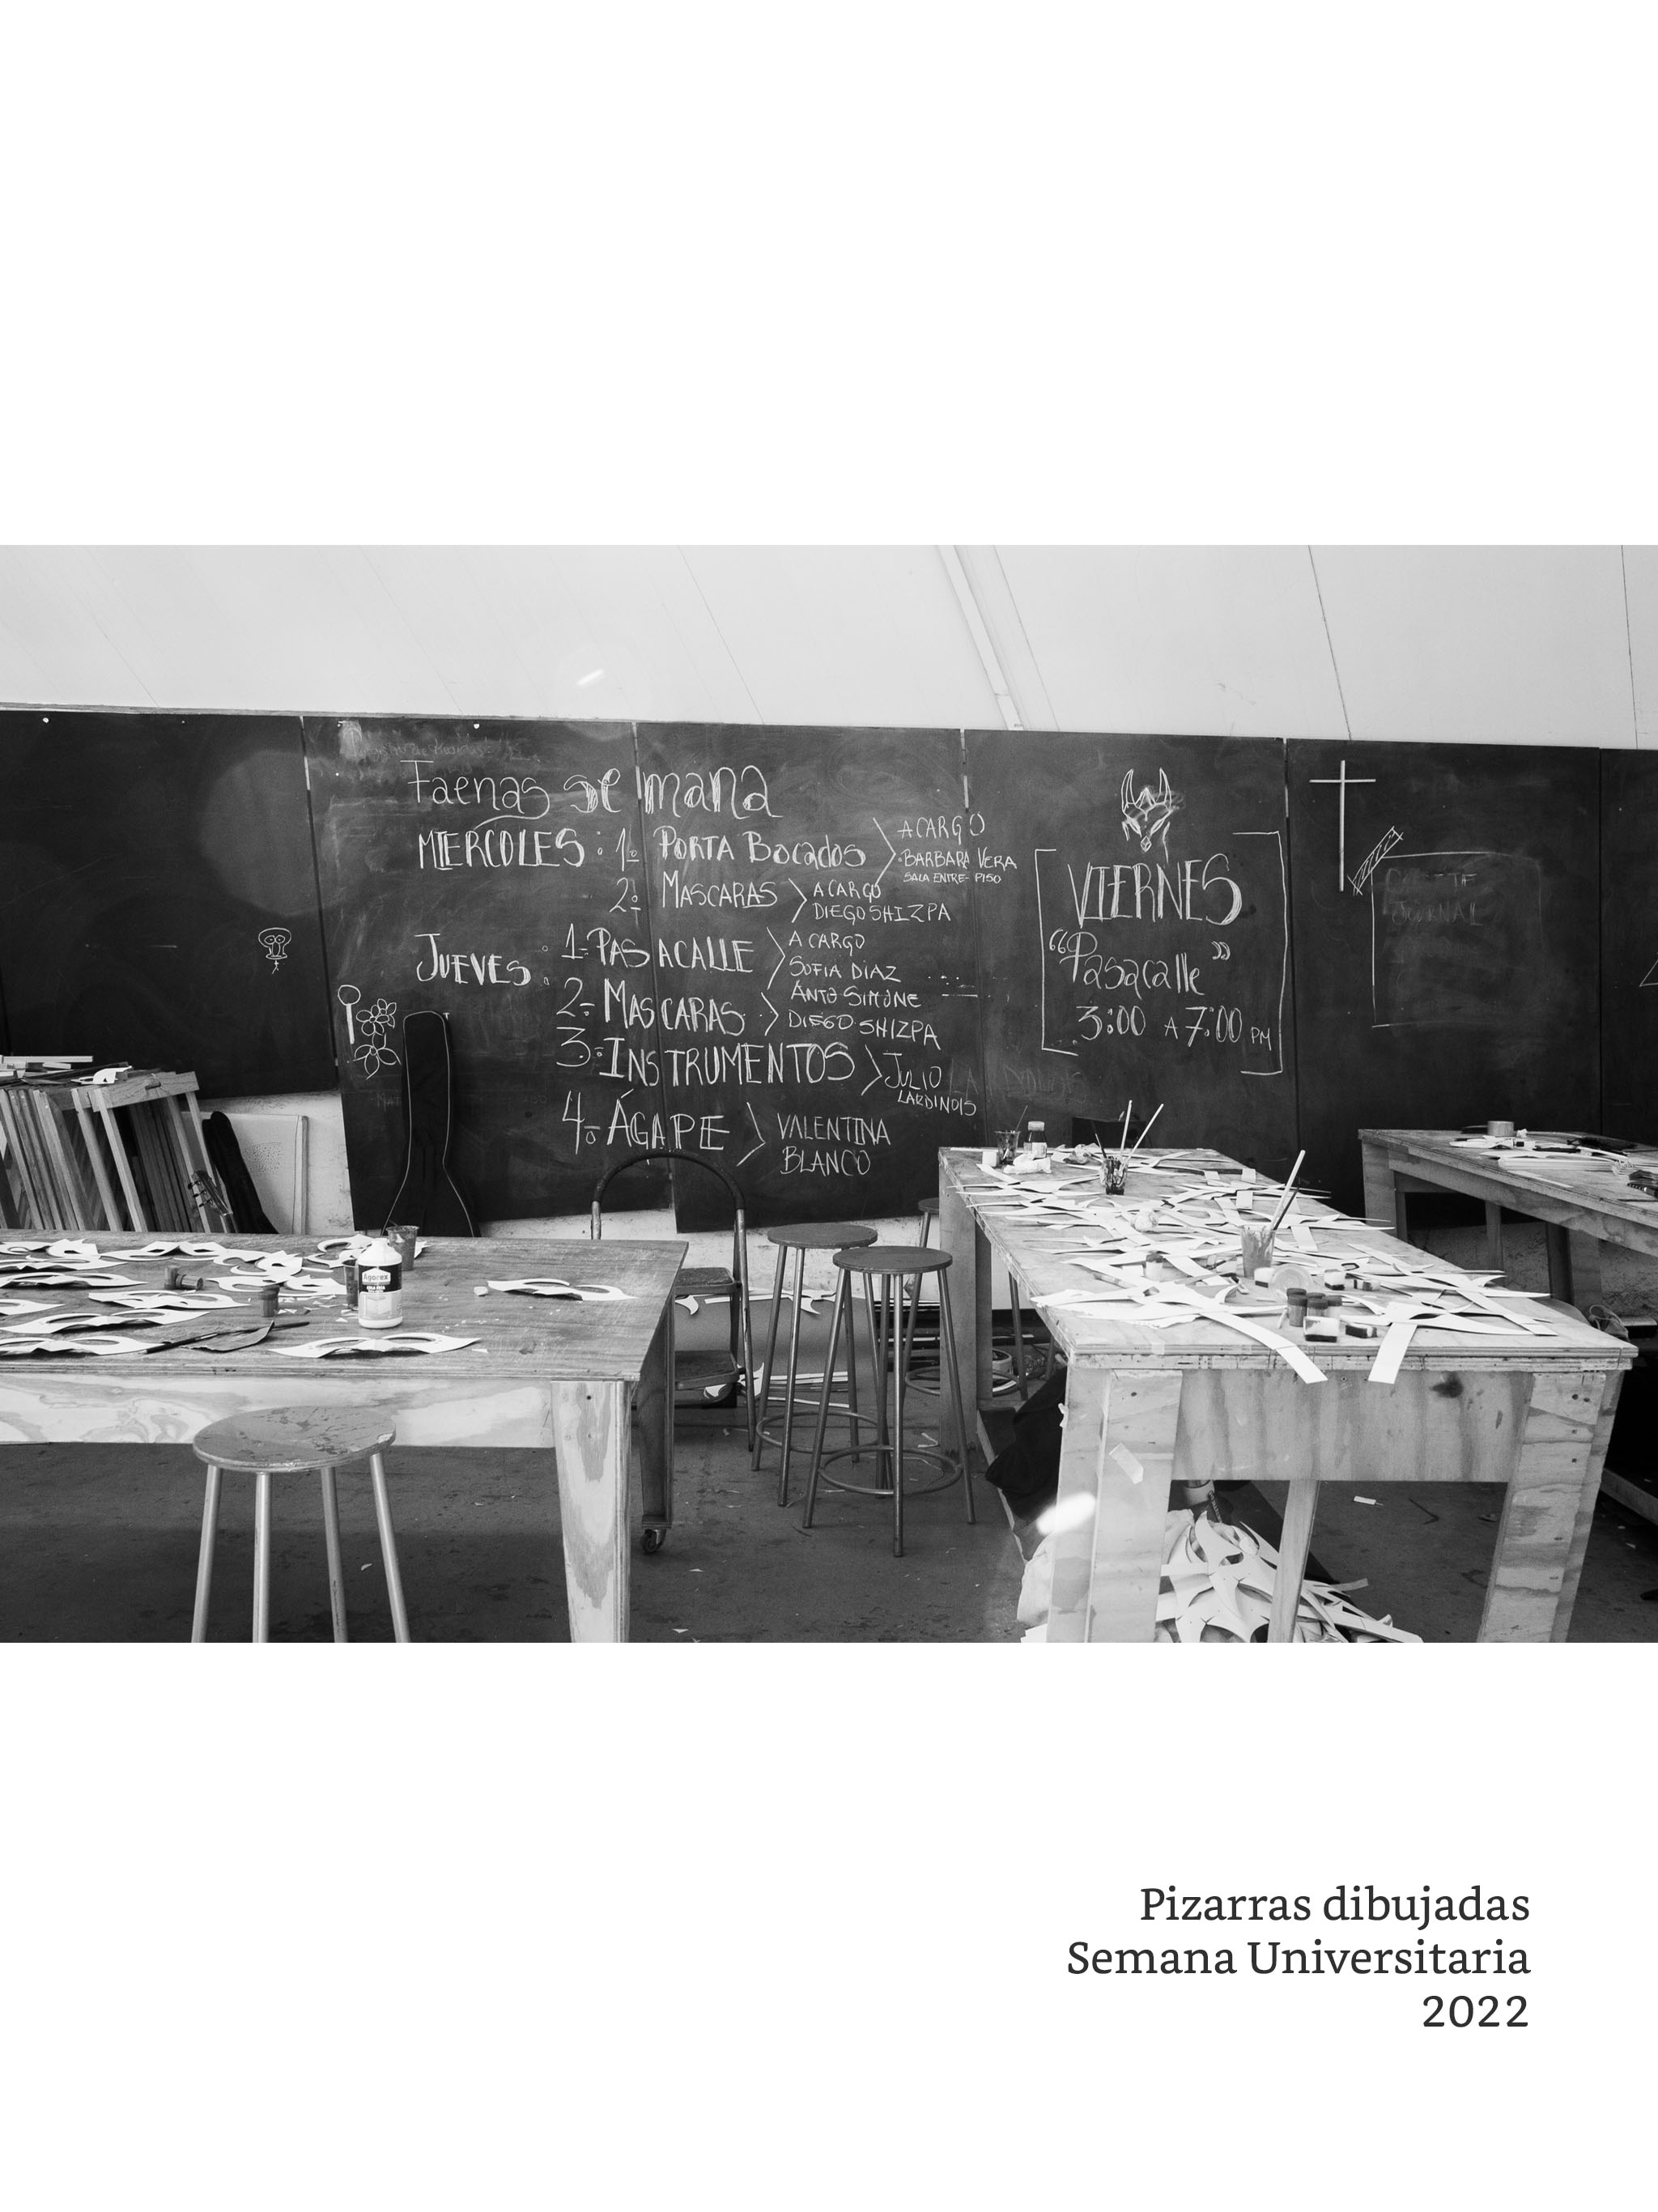 Faenas semana
MIERCOLES : 1º PORTA Bocados
A CARGO
BARBARA VERA
SALA ENTRE-PISO
2º MASCARAS
A CARGO
DIEGO SHIZPA
JUEVES : 1- PASACALLE
A CARGO
SOFIA DIAZ
ANTO SIMONE
2- MASCARAS
DIEGO SHIZPA
3- INSTRUMENTOS
JULIO
LARDINOIS
4º ÁGAPE
VALENTINA
BLANCO
VIERNES
“Pasacalle”
3:00 A 7:00 PM
JOURNAL
Agorex
Pizarras dibujadas
Semana Universitaria
2022